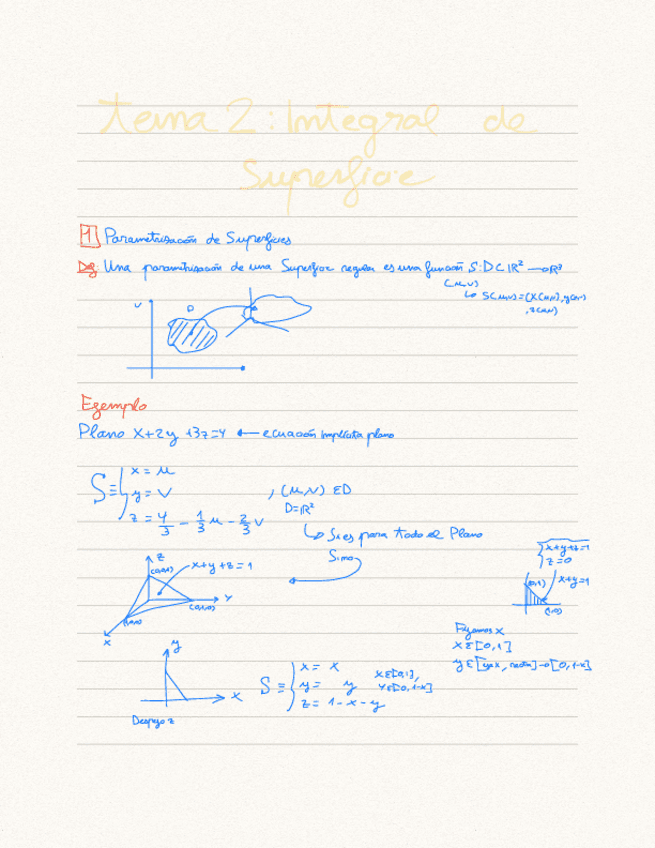 tema 2: Integral de
Superficie
1 Parametrización de Superficies
Def: Una parametrización de una Superficie regular es una función S: D ⊂ ℝ² → ℝ³
(u,v)
↳ S(u,v) = (x(u,v), y(u,v)
, z(u,v))
v
D
Ejemplo
Plano x+2y+3z=4 ← ecuación implícita plano
S ≡ { x = u
y = v
z = 4/3 - 1/3 u - 2/3 v
, (u,v) ∈ D
D=ℝ²
↳ Si es para todo el Plano
Si no
z
(0,0,1)
x+y+z=1
y
(0,1,0)
(1,0,0)
x
{ x+y+z=1
z=0
(0,1)
x+y=1
(1,0)
Fijamos x
x∈[0,1]
y∈[eje x, recta] → [0,1-x]
y
x
Despejo z
S ≡ { x = x
y = y
z = 1-x-y
x∈[0,1],
y∈[0,1-x]